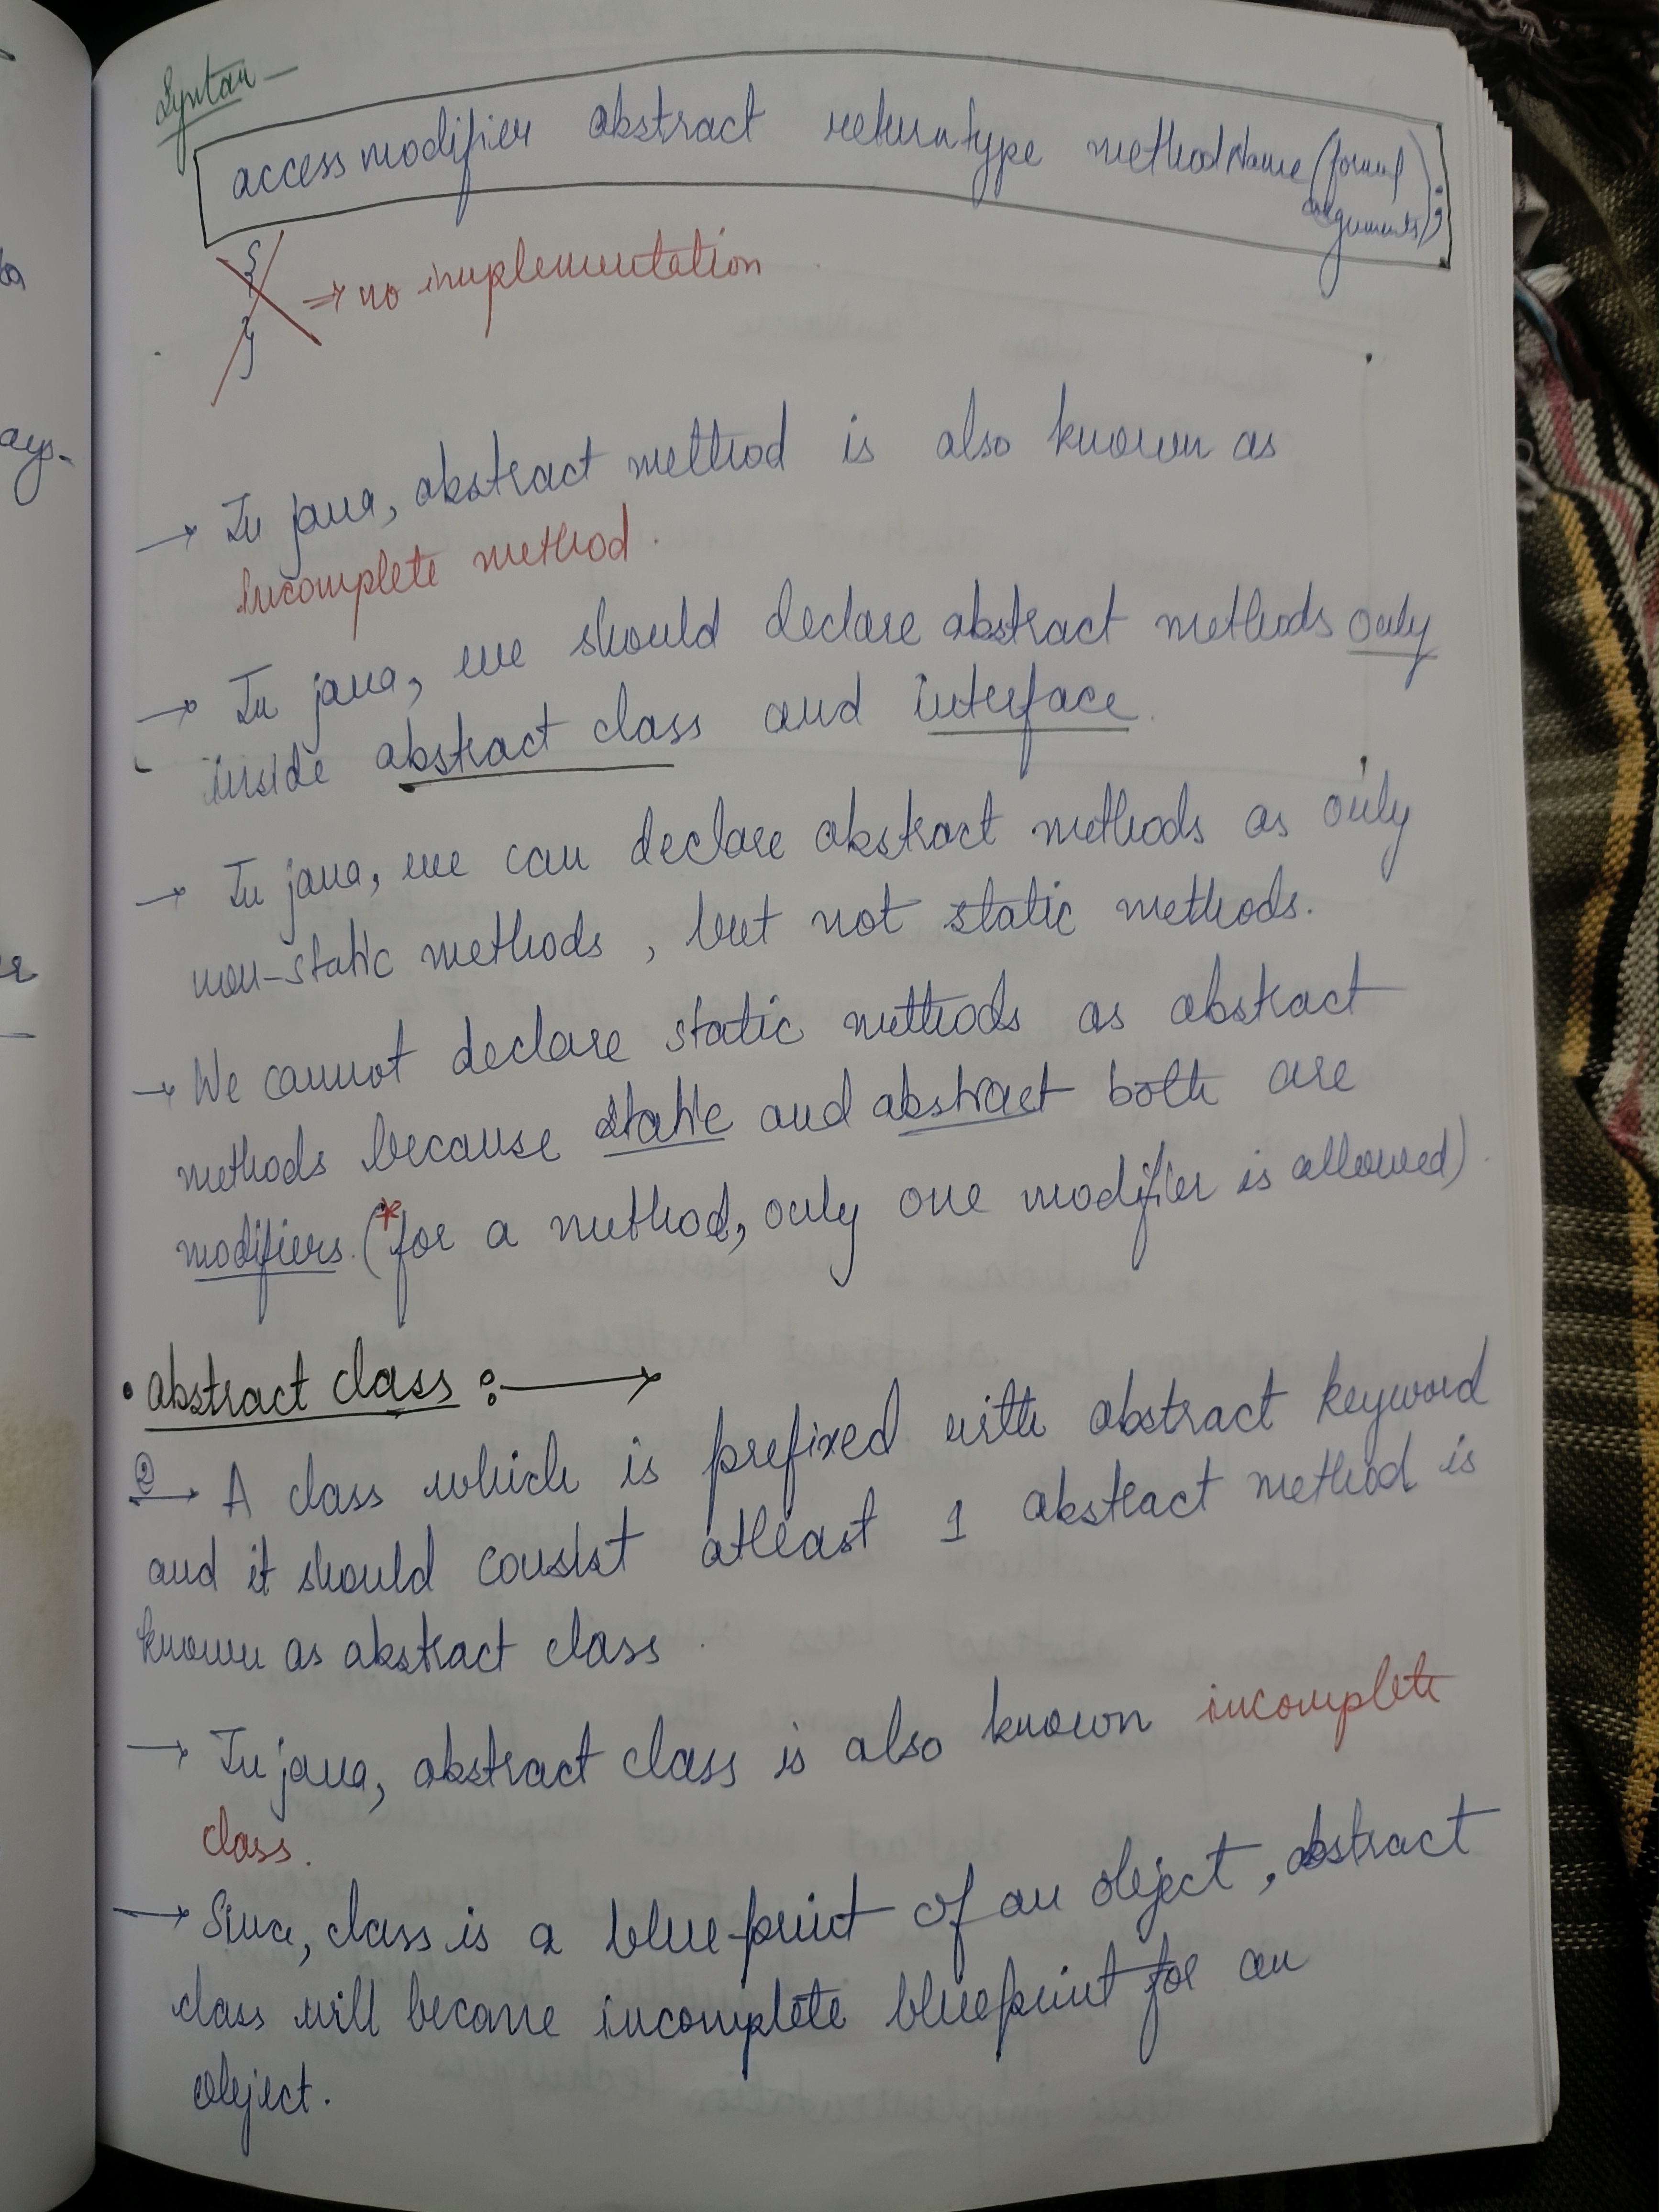 Syntax —
accessmodifier abstract returntype methodName (formal
arguments);
{
⇒ no implementation
}
→ In java, abstract method is also known as
incomplete method.
→ In java, we should declare abstract methods only
inside abstract class and interface.
→ In java, we can declare abstract methods as only
non-static methods, but not static methods.
→ We cannot declare static methods as abstract
methods because static and abstract both are
modifiers. (*for a method, only one modifier is allowed)
• abstract class :⟶
② → A class which is prefixed with abstract keyword
and it should consist atleast 1 abstract method is
known as abstract class.
→ In java, abstract class is also known incomplete
class.
→ Since, class is a blue-print of an object, abstract
class will become incomplete blueprint for an
object.